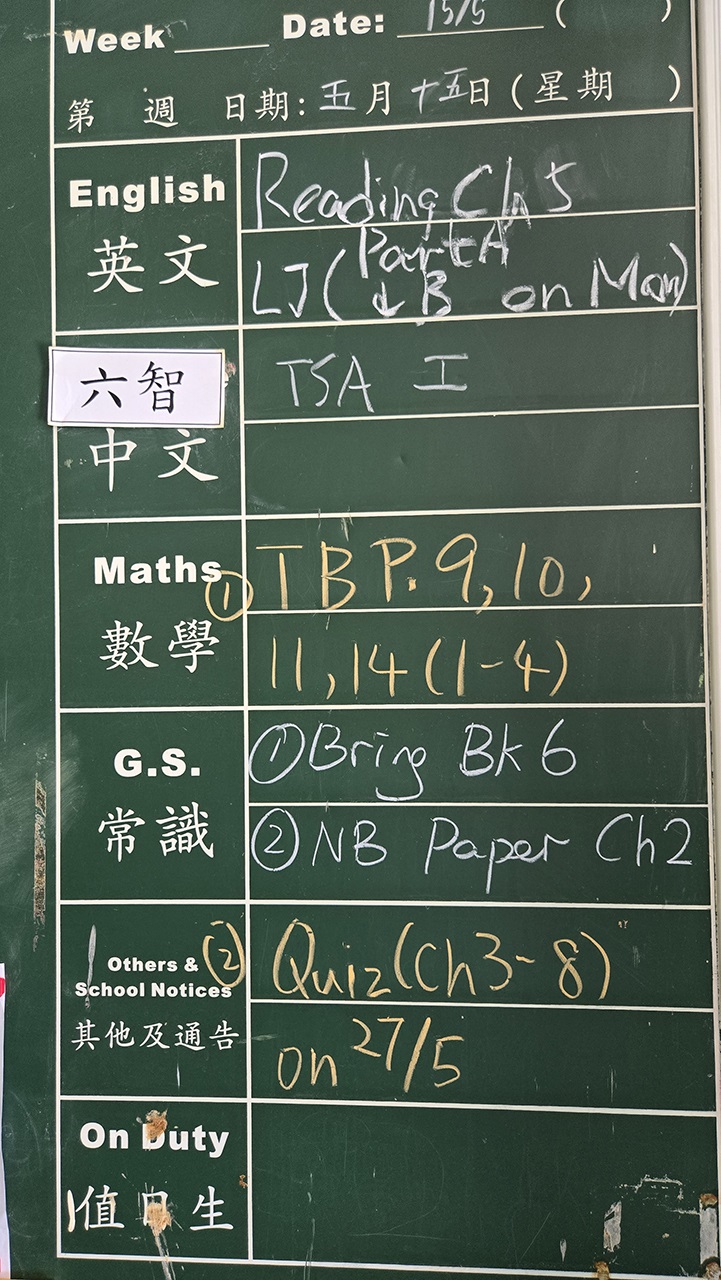 Week ____ Date: 15/5 ( )
第 週 日期: 五月十五日 (星期 )
English Reading Ch 5
英文 Part A
LJ ( ↓ B on Mon)
六智 TSA I
中文
Maths ① TB P. 9, 10,
數學 11, 14 (1-4)
G.S. ① Bring Bk 6
常識 ② NB Paper Ch2
Others & ② Quiz (Ch3-8)
School Notices
其他及通告 on 27/5
On Duty
值日生